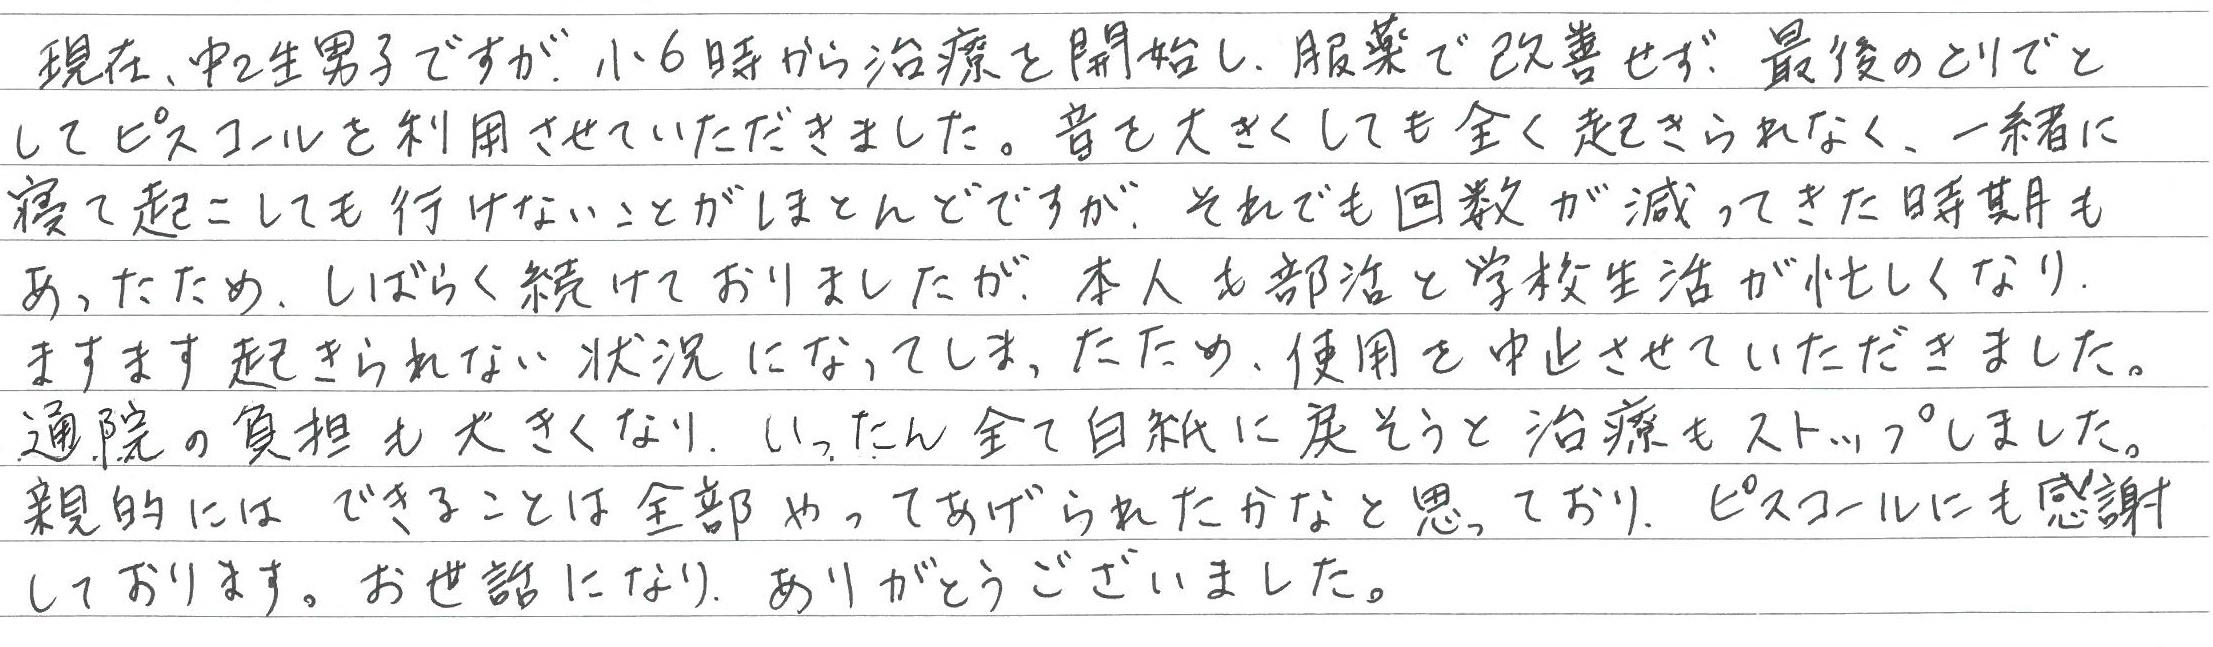 現在、中2生男子ですが、小6時から治療を開始し、服薬で改善せず、最後のとりでと
してピスコールを利用させていただきました。音を大きくしても全く起きられなく、一緒に
寝て起こしても行けないことがほとんどですが、それでも回数が減ってきた時期も
あったため、しばらく続けておりましたが、本人も部活と学校生活が忙しくなり、
ますます起きられない状況になってしまったため、使用を中止させていただきました。
通院の負担も大きくなり、いったん全て白紙に戻そうと治療もストップしました。
親的にはできることは全部やってあげられたかなと思っており、ピスコールにも感謝
しております。お世話になり、ありがとうございました。